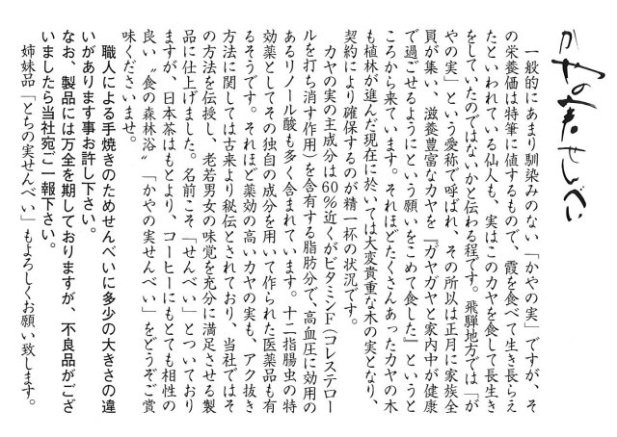 かやの実せんべい
一般的にあまり馴染みのない「かやの実」ですが、そ
の栄養価は特筆に値するもので、霞を食べて生き長らえ
たといわれている仙人も、実はこのカヤを食して長生き
をしていたのではないかと伝わる程です。飛騨地方では「が
やの実」という愛称で呼ばれ、その所以は正月に家族全
員が集い、滋養豊富なカヤを『ガヤガヤと家内中が健康
で過ごせるようにという願いをこめて食した』というと
ころから来ています。それほどたくさんあったカヤの木
も植林が進んだ現在に於いては大変貴重な木の実となり、
契約により確保するのが精一杯の状況です。
カヤの実の主成分は60%近くがビタミンF(コレステロー
ルを打ち消す作用)を含有する脂肪分で、高血圧に効用の
あるリノール酸も多く含まれています。十二指腸虫の特
効薬としてその独自の成分を用いて作られた医薬品も有
るそうです。それほど薬効の高いカヤの実も、アク抜き
方法に関しては古来より秘伝とされており、当社ではそ
の方法を伝授し、老若男女の味覚を充分に満足させる製
品に仕上げました。名前こそ「せんべい」とついており
ますが、日本茶はもとより、コーヒーにもとても相性の
良い〝食の森林浴〟「かやの実せんべい」をどうぞご賞
味くださいませ。
職人による手焼きのためせんべいに多少の大きさの違
いがあります事お許し下さい。
なお、製品には万全を期しておりますが、不良品がござ
いましたら当社宛ご一報下さい。
姉妹品「とちの実せんべい」もよろしくお願い致します。